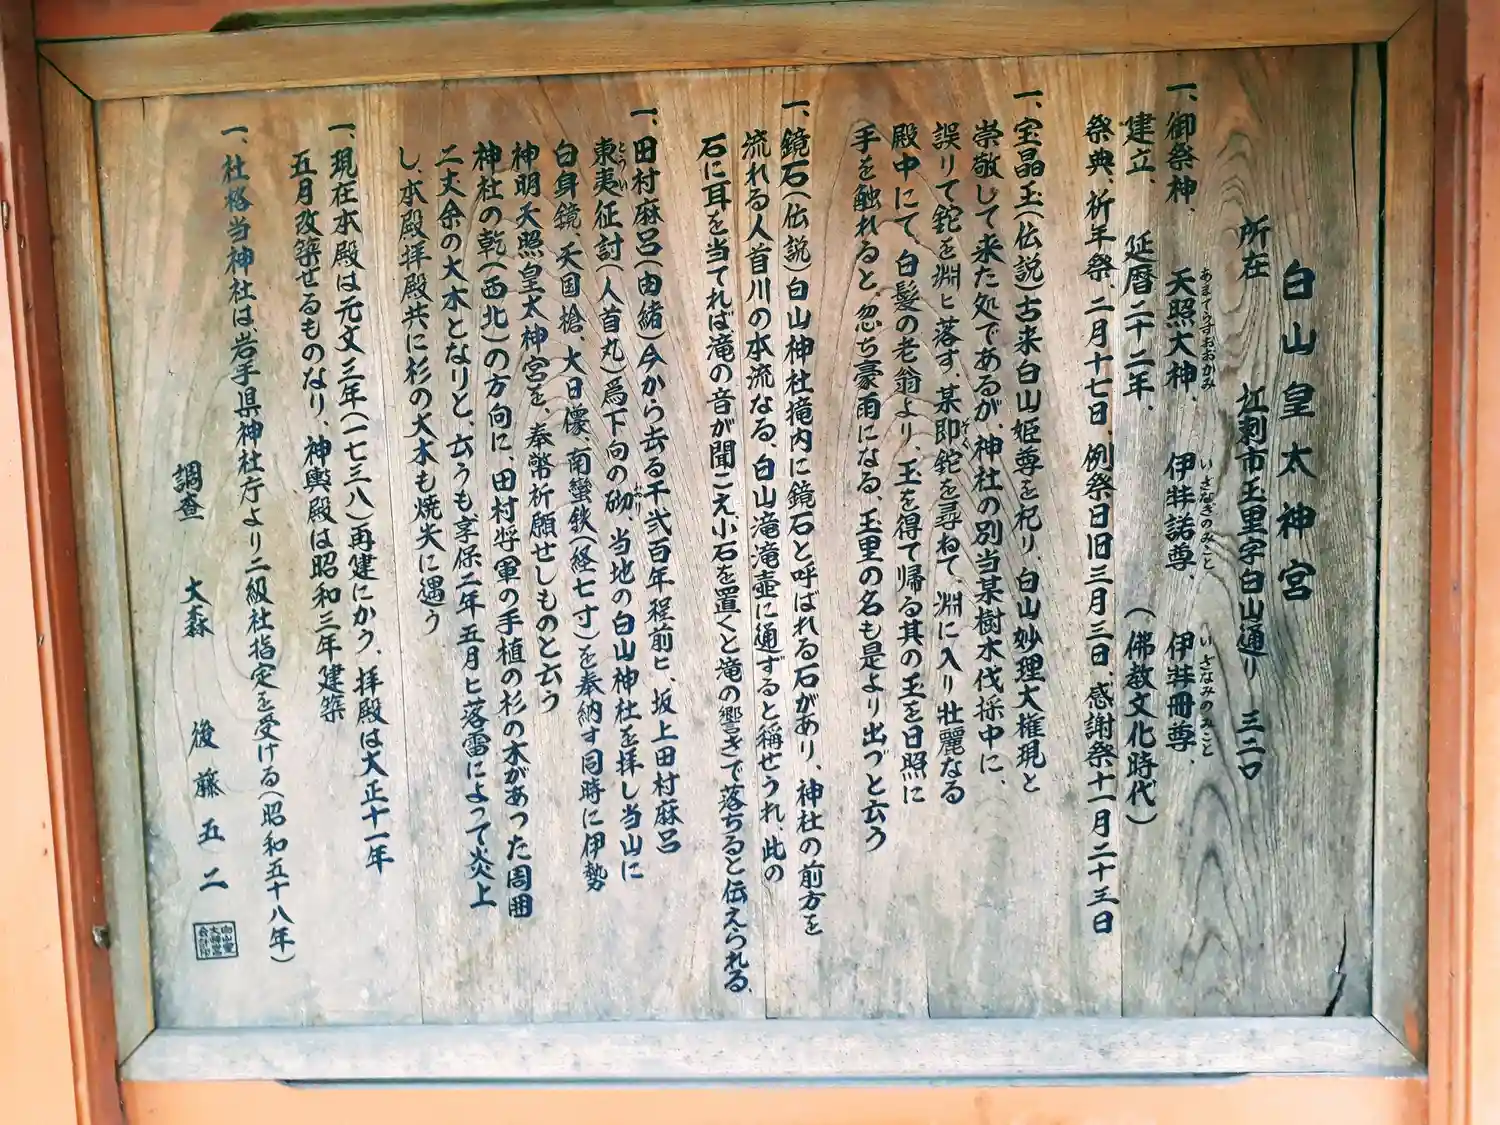 白山皇太神宮
所在 江刺市玉里字白山通り 三二〇
一、御祭神、 天照大神、 伊弉諾尊、 伊弉冊尊、
あまてらすおおかみ いさなぎのみこと いさなみのみこと
建立、 延暦二十二年、 (佛教文化時代)
祭典、祈年祭、二月十七日、例祭日旧三月三日、感謝祭十一月二十三日
一、宝晶玉(伝説)古来白山姫尊を祀り、白山妙理大権現と
崇敬して来た処であるが、神社の別当某樹木伐採中に、
誤りて鉈を淵ヒ落す、某即鉈を尋ねて、淵に入り壮麗なる
そく
殿中にて、白髪の老翁より、玉を得て帰る其の玉を日照に
手を触れると、忽ち豪雨になる、玉里の名も是より出づと云う
一、鏡石(伝説)白山神社境内に鏡石と呼ばれる石があり、神社の前方を
流れる人首川の本流なる、白山滝滝壺に通ずると称せられ、此の
石に耳を当てれば、滝の音が聞こえ小石を置くと滝の響きで落ちると伝えられる、
一、田村麻呂(由緒)今から去る千弐百年程前ヒ、坂上田村麻呂
東夷征討(人首丸)為下向の砌、当地の白山神社を拝し当山に
とうい おり
白身鏡、天国槍、大日懐、南蛮鉄(経七寸)を奉納す同時に伊勢
神明天照皇太神宮を、奉幣祈願せしものと云う
神社の乾(西北)の方向に、田村将軍の手植の杉の木があった周囲
二丈余の大木となりと、云うも、享保二年五月ヒ落雷によって炎上
し、本殿拝殿共に杉の大木も焼失に遇う
一、現在本殿は元文三年(一七三八)再建にかう、拝殿は大正十一年
五月改築せるものなり、神輿殿は昭和三年建築
一、社格当神社は、岩手県神社庁より二級社指定を受ける(昭和五十八年)
調査 大森 後藤五二